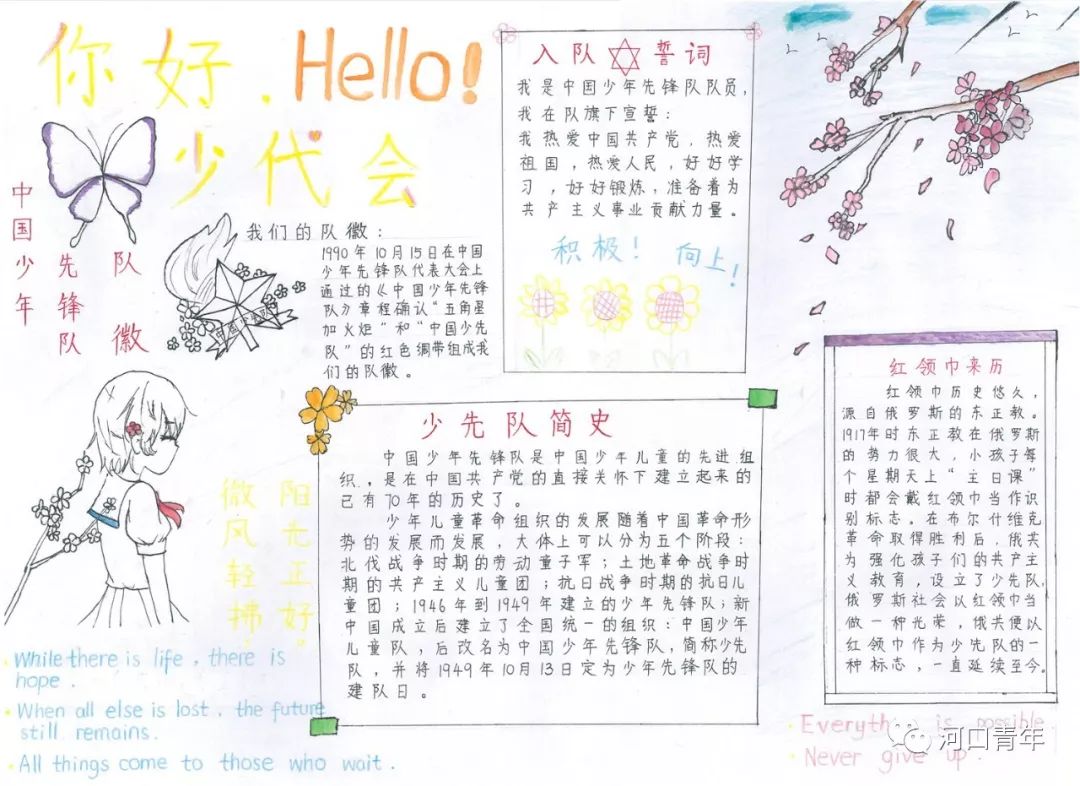 你好.Hello!
少代会
中国少年
先锋队
队徽
我们的队徽:
1990年10月15日在中国
少年先锋队代表大会上
通过的《中国少年先锋
队》章程确认“五角星
加火炬”和“中国少先
队”的红色绸带组成我
们的队徽。
入队 誓词
我是中国少年先锋队队员,
我在队旗下宣誓:
我热爱中国共产党,热爱
祖国,热爱人民,好好学
习,好好锻炼,准备着为
共产主义事业贡献力量。
积极! 向上!
少先队简史
中国少年先锋队是中国少年儿童的先进组
织,是在中国共产党的直接关怀下建立起来的
已有70年的历史了。
少年儿童革命组织的发展随着中国革命形
势的发展而发展,大体上可以分为五个阶段:
北伐战争时期的劳动童子军;土地革命战争时
期的共产主义儿童团;抗日战争时期的抗日儿
童团;1946年到1949年建立的少年先锋队;新
中国成立后建立了全国统一的组织:中国少年
儿童队,后改名为中国少年先锋队,简称少先
队,并将1949年10月13日定为少年先锋队的
建队日。
红领巾来历
红领巾历史悠久,
派自俄罗斯的东正教。
1917年时东正教在俄罗斯
的势力很大,小孩子每
个星期天上“主日课”
时都会戴红领巾当作识
别标志。在布尔什维克
革命取得胜利后,俄共
为强化孩子们的共产主
义教育,设立了少先队,
俄罗斯社会以红领巾当
做一种光荣,俄共便以
红领巾作为少先队的一
种标志,一直延续至今。
阳光正好。
微风轻拂。
While there is life, there is
hope.
When all else is lost. the future
still remains.
All things come to those who wait.
is possible.
Never give up.
河口青年